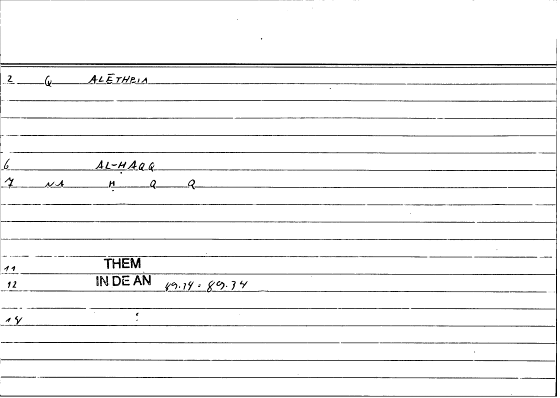 2 G ALĒTHEIA
6 AL-ḤAQQ
7 NA Ḥ Q Q
11 THEM
12 IN DE AN 49.14 = 89.34
14 :